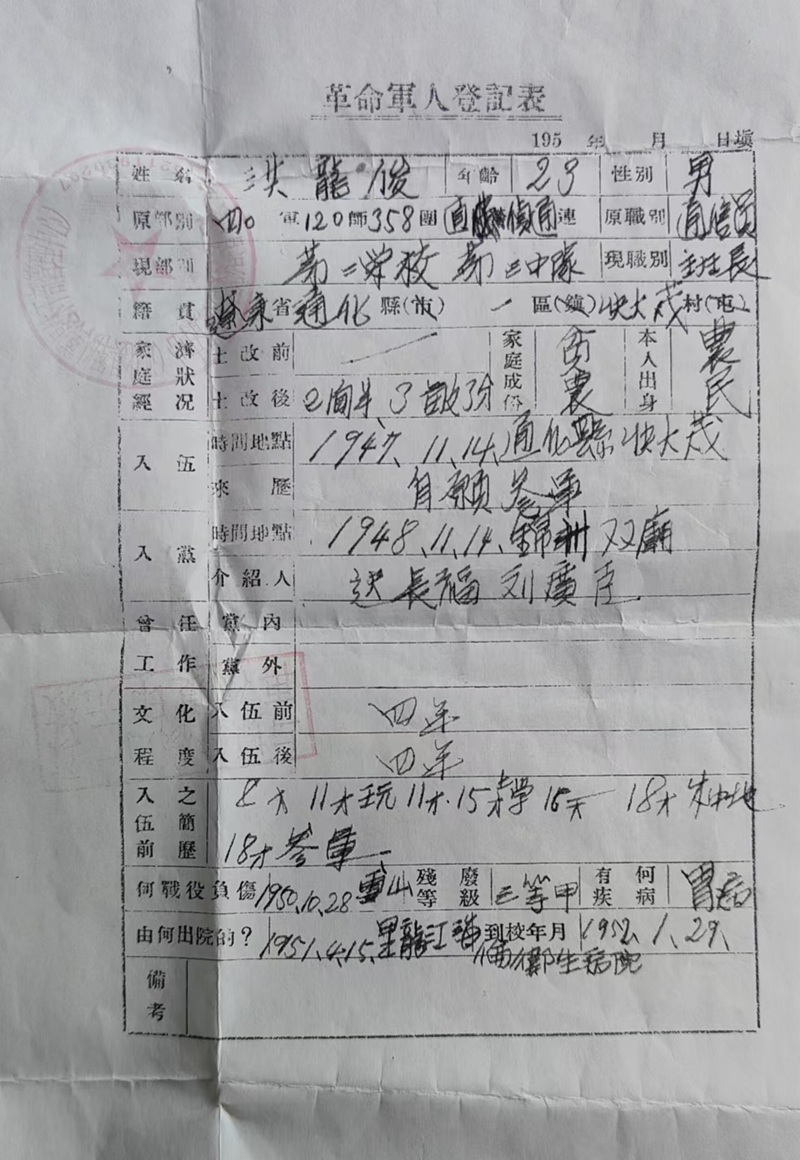 革命軍人登記表
195 年 月 日填
姓名 洪龍俊 年齡 23 性別 男
原部別 四0軍120師358團直属偵通連 原職別 通信員
現部別 第二学校第三中隊 現職別 班長
籍貫 遼東省通化縣(市) 一區(鎮)快大茂村(屯)
家庭經濟狀况 土改前
土改後 2間半 3畝3分 家庭成份 贫農 本人出身 農民
入伍 時間地點 1947、11、14、通化縣快大茂
來歷 自願参軍
入黨 時間地點 1948、11、14、錦州双廟
介紹人 長福 刘廣臣
曾任工作 黨內
黨外
文化程度 入伍前 四年
入伍後 四年
入伍前之簡歷 8才 11才玩 11才·15才学 18才
18才参軍
何戰役負傷 1950、10、28 雲山 殘廢等級 三等甲 有何疾病 胃病
由何出院的? 1951、4、15、黑龍江 到校年月 1952、1、29、
衛生病院
備考